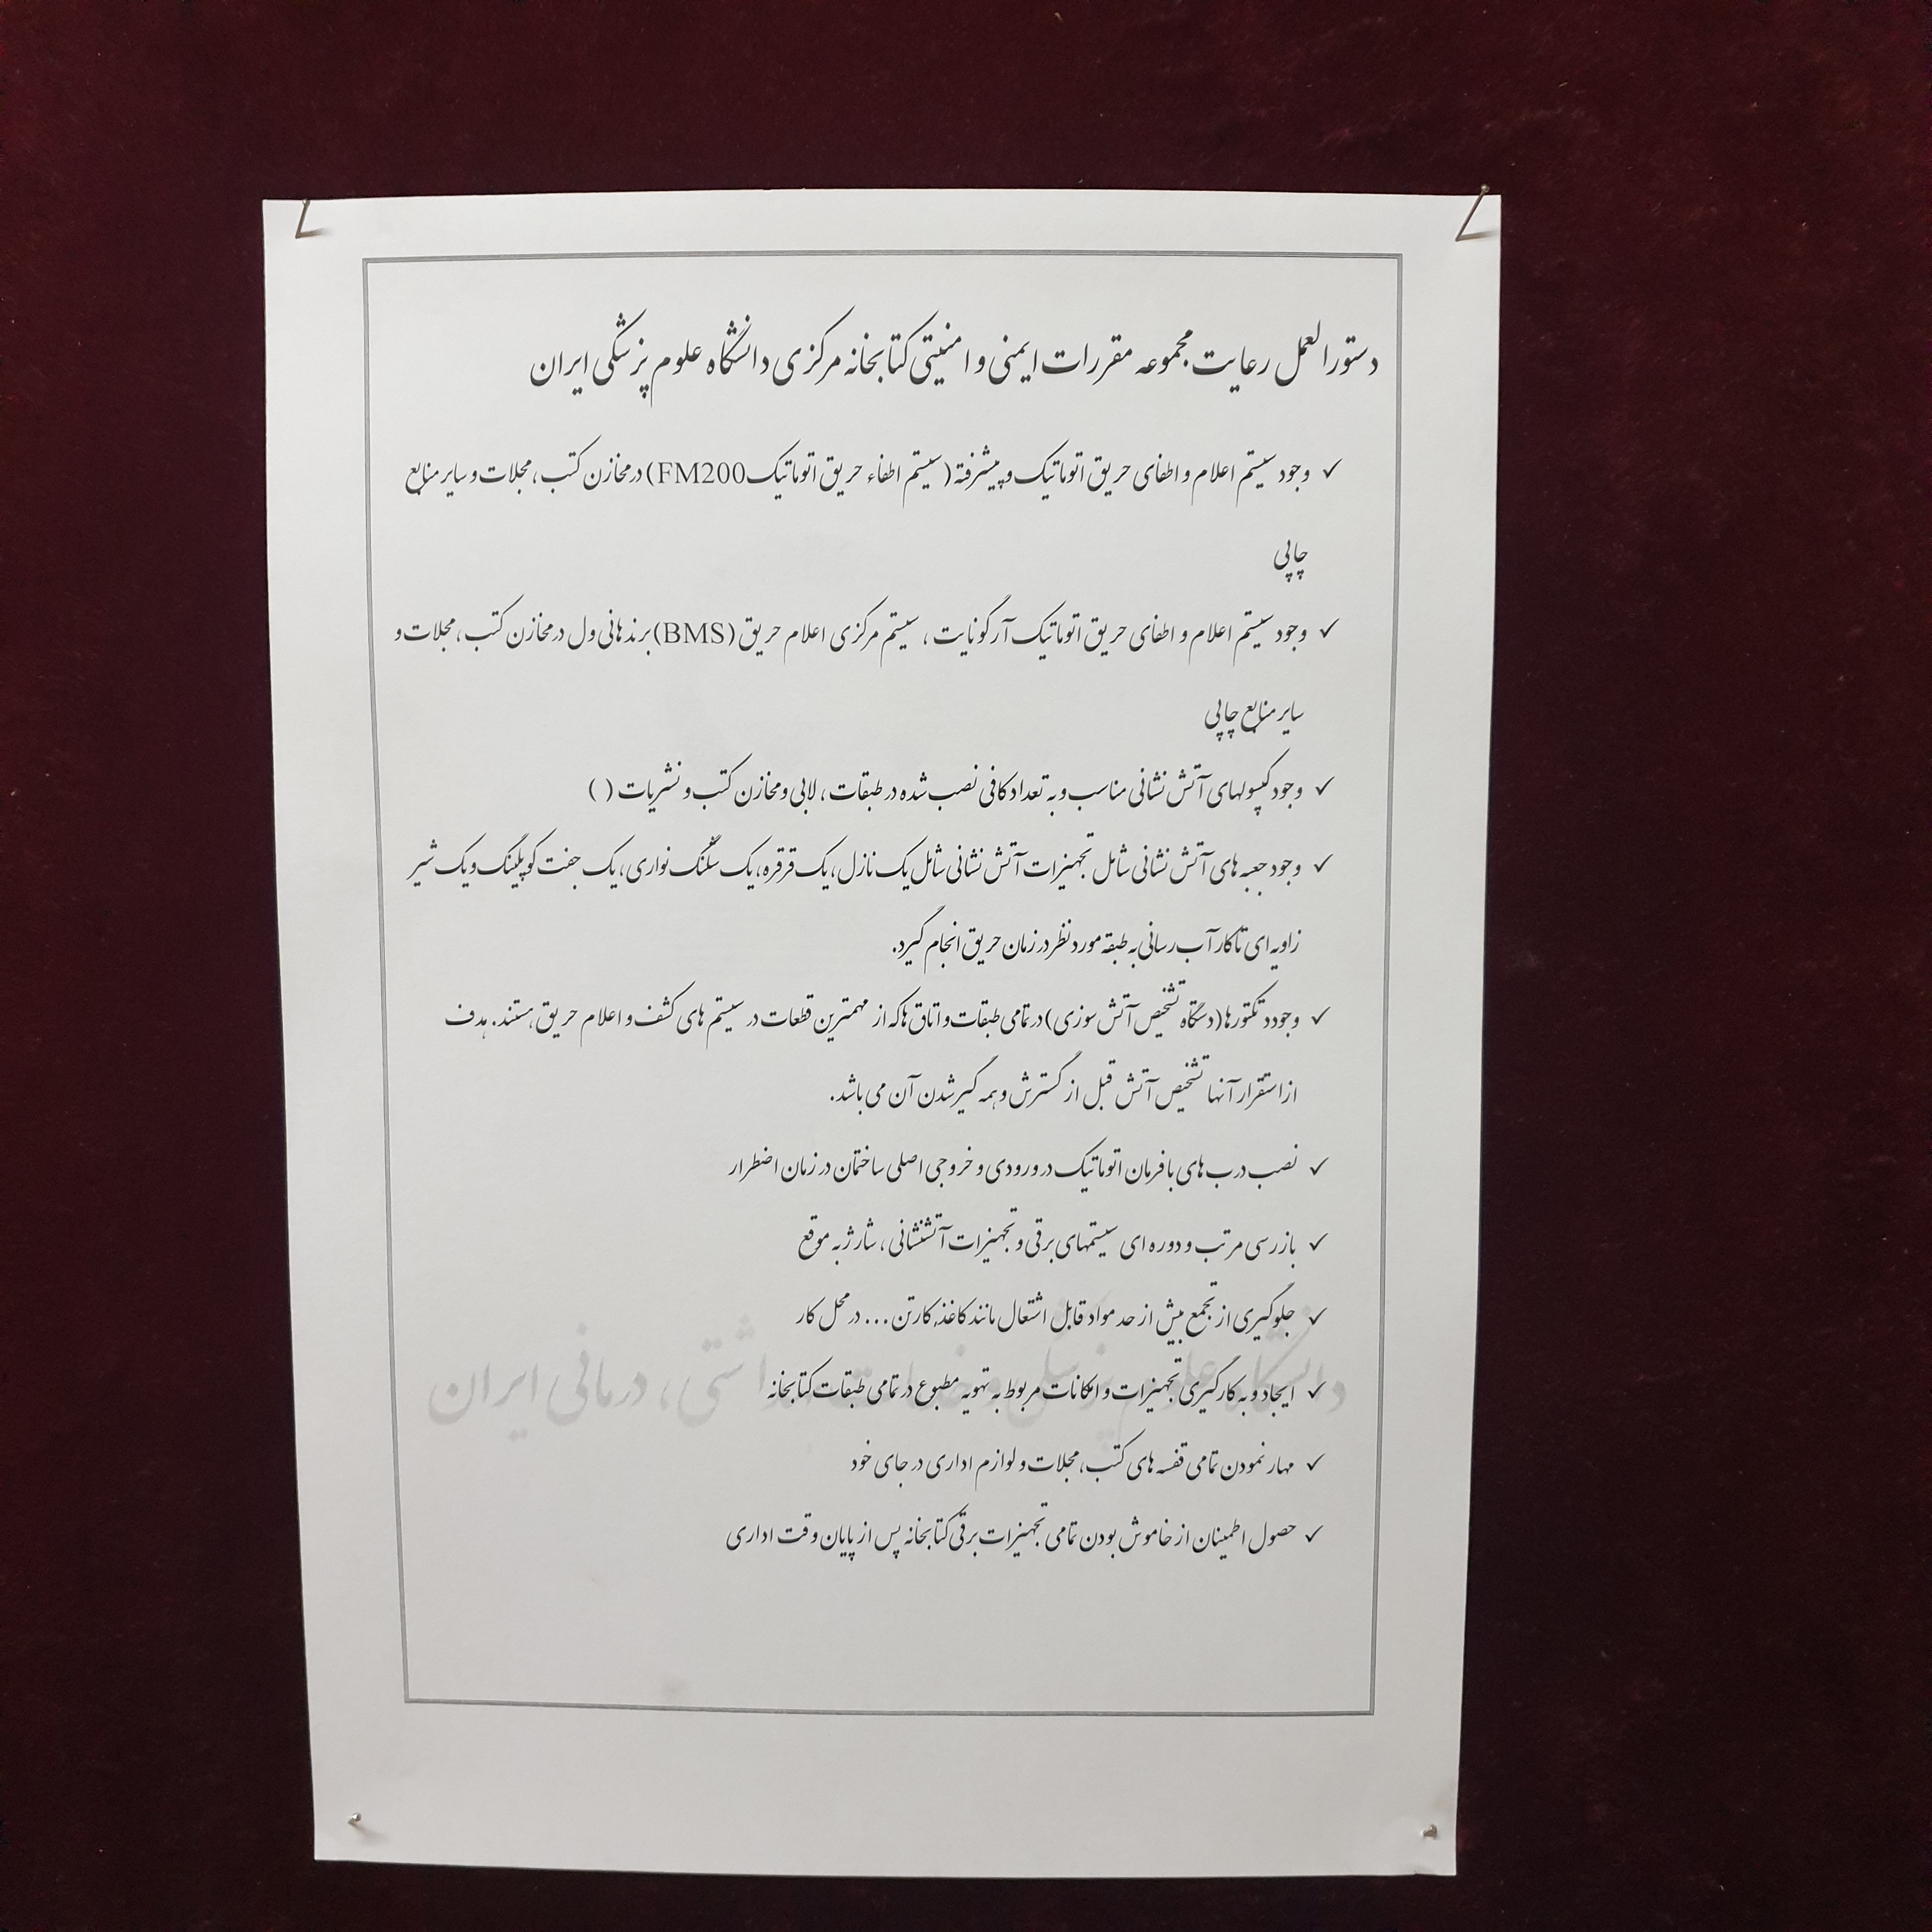 دستورالعمل رعایت مجموعه مقررات ایمنی و امنیتی کتابخانه مرکزی دانشگاه علوم پزشکی ایران
✓ وجود سیستم اعلام و اطفای حریق اتوماتیک و پیشرفته (سیستم اطفاء حریق اتوماتیک FM200) در مخازن کتب، مجلات و سایر منابع
چاپی
✓ وجود سیستم اعلام و اطفای حریق اتوماتیک آرگونایت، سیستم مرکزی اعلام حریق (BMS) برند هانی ول در مخازن کتب، مجلات و
سایر منابع چاپی
✓ وجود کپسولهای آتش نشانی مناسب و به تعداد کافی نصب شده در طبقات، لابی و مخازن کتب و نشریات ( )
✓ وجود جعبه های آتش نشانی شامل تجهیزات آتش نشانی شامل یک نازل، یک قرقره، یک شلنگ نواری، یک جفت کوپلینگ و یک شیر
زاویه ای تا کار آب رسانی به طبقه مورد نظر در زمان حریق انجام گیرد.
✓ وجود دتکتورها (دستگاه تشخیص آتش سوزی) در تمامی طبقات و اتاق ها که از مهمترین قطعات در سیستم های کشف و اعلام حریق هستند. هدف
از استقرار آنها تشخیص آتش قبل از گسترش و همه گیر شدن آن می باشد.
✓ نصب درب های با فرمان اتوماتیک در ورودی و خروجی اصلی ساختمان در زمان اضطرار
✓ بازرسی مرتب و دوره ای سیستمهای برقی و تجهیزات آتشنشانی، شارژ به موقع
✓ جلوگیری از تجمع بیش از حد مواد قابل اشتعال مانند کاغذ، کارتن ... در محل کار
✓ ایجاد و به کارگیری تجهیزات و امکانات مربوط به تهویه مطبوع در تمامی طبقات کتابخانه
دانشگاه علوم پزشکی و خدمات بهداشتی، درمانی ایران
✓ مهار نمودن تمامی قفسه های کتب، مجلات و لوازم اداری در جای خود
✓ حصول اطمینان از خاموش بودن تمامی تجهیزات برقی کتابخانه پس از پایان وقت اداری